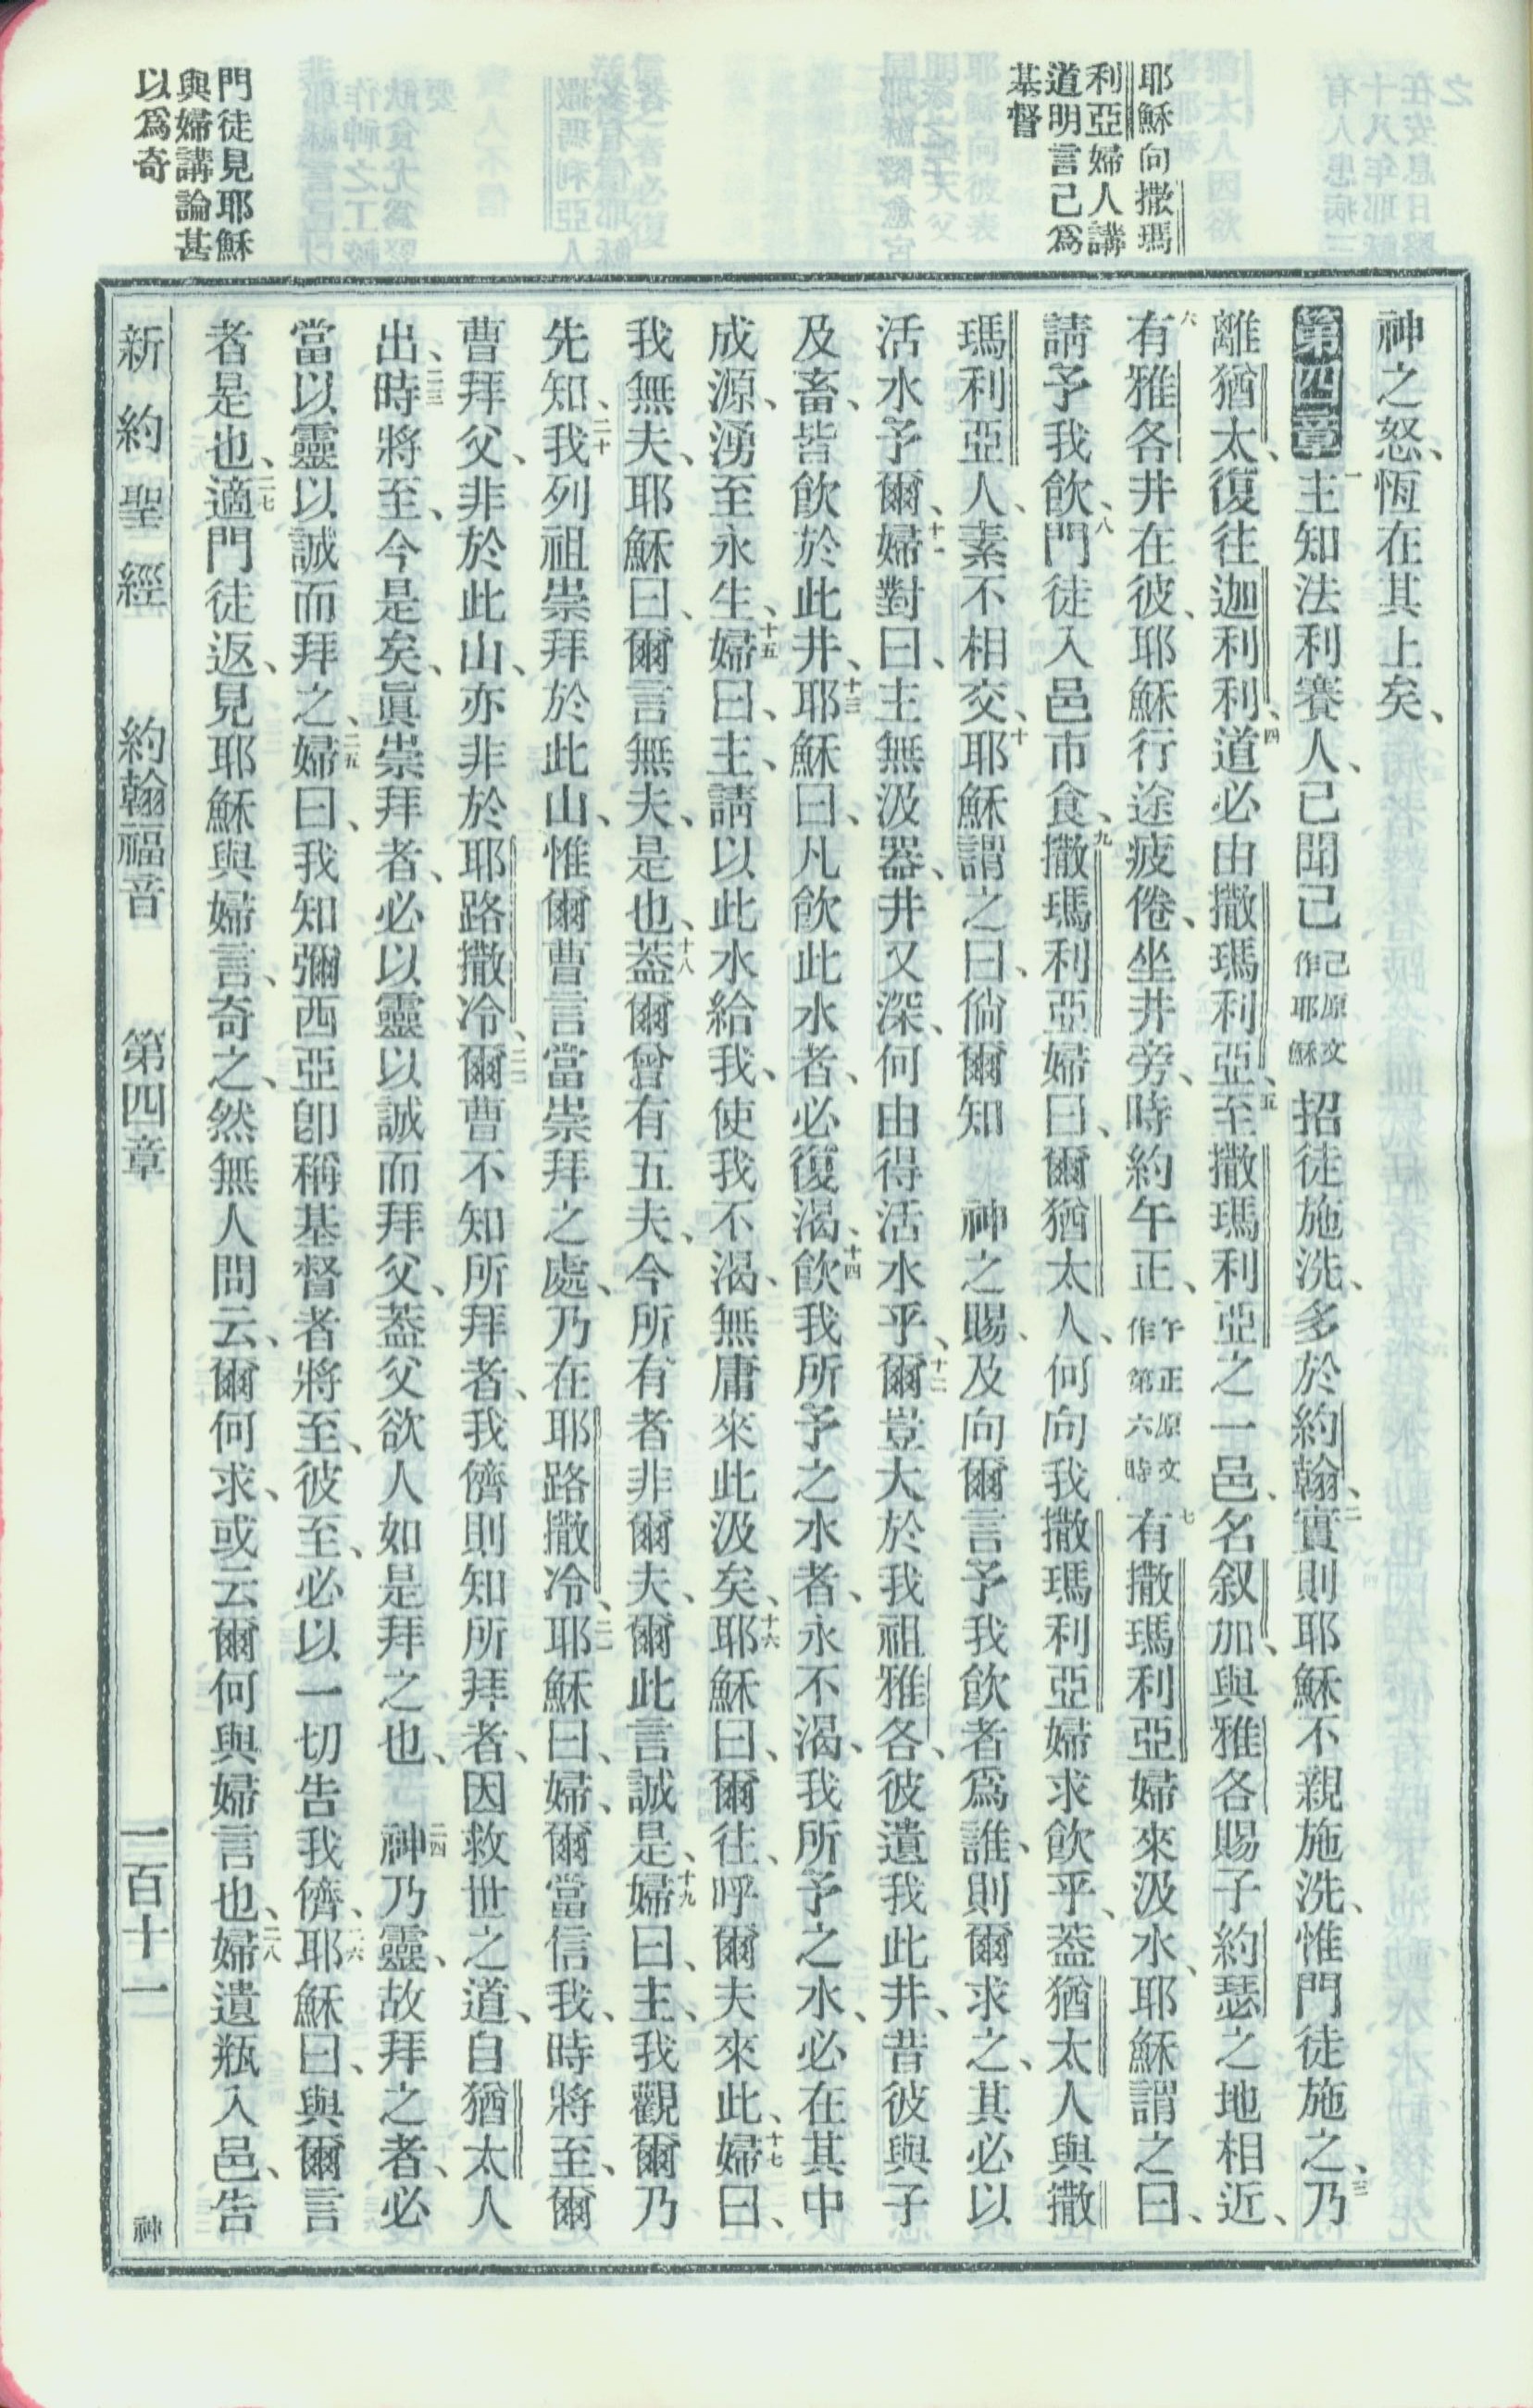 耶穌向撒瑪
利亞婦人講
道明言己爲
基督
門徒見耶穌
與婦講論甚
以爲奇
神之怒、恆在其上矣、
第四章 一主知法利賽人、已聞己己原文作耶穌招徒施洗、多於約翰、二實則耶穌不親施洗、惟門徒施之、三乃
離猶太、復往迦利利、四道必由撒瑪利亞、五至撒瑪利亞之一邑、名叙加、與雅各賜子約瑟之地相近、
六有雅各井在彼、耶穌行途疲倦、坐井旁、時約午正、午正原文作第六時七有撒瑪利亞婦來汲水、耶穌謂之曰、
請予我飲、八門徒入邑市食、九撒瑪利亞婦曰、爾猶太人、何向我撒瑪利亞婦求飲乎、蓋猶太人與撒
瑪利亞人、素不相交、十耶穌謂之曰、倘爾知 神之賜、及向爾言予我飲者爲誰、則爾求之、其必以
活水予爾、十一婦對曰、主無汲器、井又深、何由得活水乎、十二爾豈大於我祖雅各、彼遺我此井、昔彼與子
及畜、皆飲於此井、十三耶穌曰、凡飲此水者、必復渴、十四飲我所予之水者、永不渴、我所予之水、必在其中
成源、湧至永生、十五婦曰、主、請以此水給我、使我不渴、無庸來此汲矣、十六耶穌曰、爾往、呼爾夫來此、十七婦曰、
我無夫、耶穌曰、爾言無夫、是也、十八蓋爾曾有五夫、今所有者非爾夫、爾此言誠是、十九婦曰、主、我觀爾乃
先知、二十我列祖崇拜於此山、惟爾曹言當崇拜之處、乃在耶路撒冷、二一耶穌曰、婦、爾當信我、時將至、爾
曹拜父、非於此山、亦非於耶路撒冷、二二爾曹不知所拜者、我儕則知所拜者、因救世之道、自猶太人
出、二三時將至、今是矣、眞崇拜者、必以靈以誠而拜父、蓋父欲人如是拜之也、 二四神乃靈、故拜之者、必
當以靈以誠而拜之、二五婦曰、我知彌西亞卽稱基督者將至、彼至、必以一切告我儕、二六耶穌曰、與爾言
者是也、二七適門徒返、見耶穌與婦言、奇之、然無人問云、爾何求、或云爾何與婦言也、二八婦遺瓶入邑、告
新約聖經 約翰福音 第四章 一百十一 神